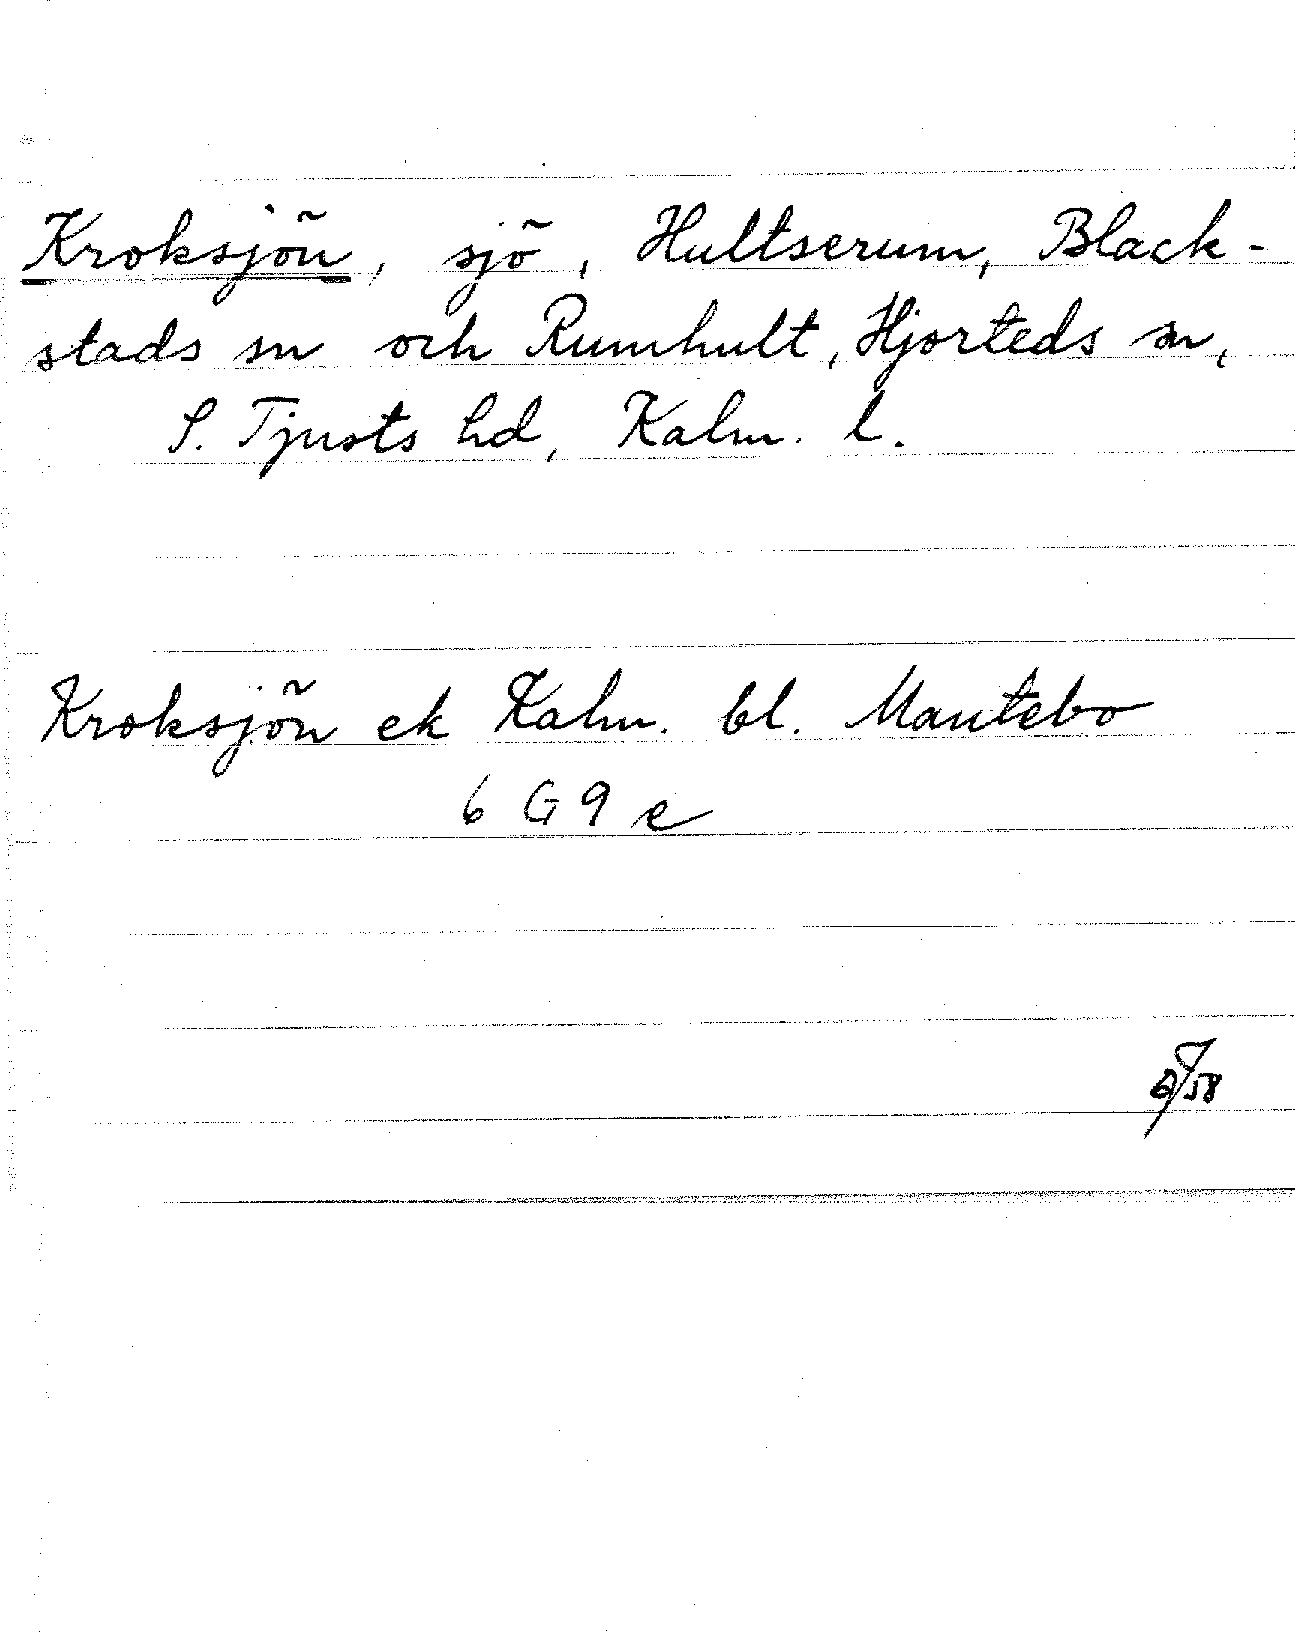 Kroksjön, sjö, Hultserum, Black-
stads sn och Rumhult, Hjorteds sn,
S. Tjusts hd, Kalm. l.
Kroksjön ek Kalm. bl. Mantebo
6 G 9 e